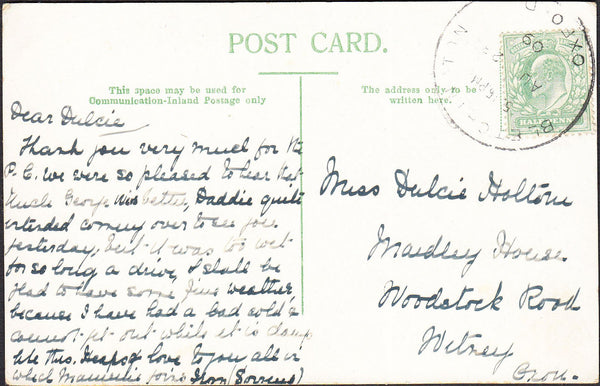 POST CARD.
This space may be used for
Communication-Inland Postage only
The address only to be
written here.
HALFPENNY
OXFORD
5.15 PM
AU
09
Dear Dulcie
Thank you very much for the
P.C. we were so pleased to hear that
Uncle George was better, Daddie quite
intended coming over to see you
yesterday, but it was too wet
for so long a drive, I shall be
glad to have some fine weather
because I have had a bad cold &
cannot get out while it is damp
like this. Heaps of love to you all in
which Mammie joins from
Miss Dulcie Holtom
House
Woodstock Road
Witney
Oxon.